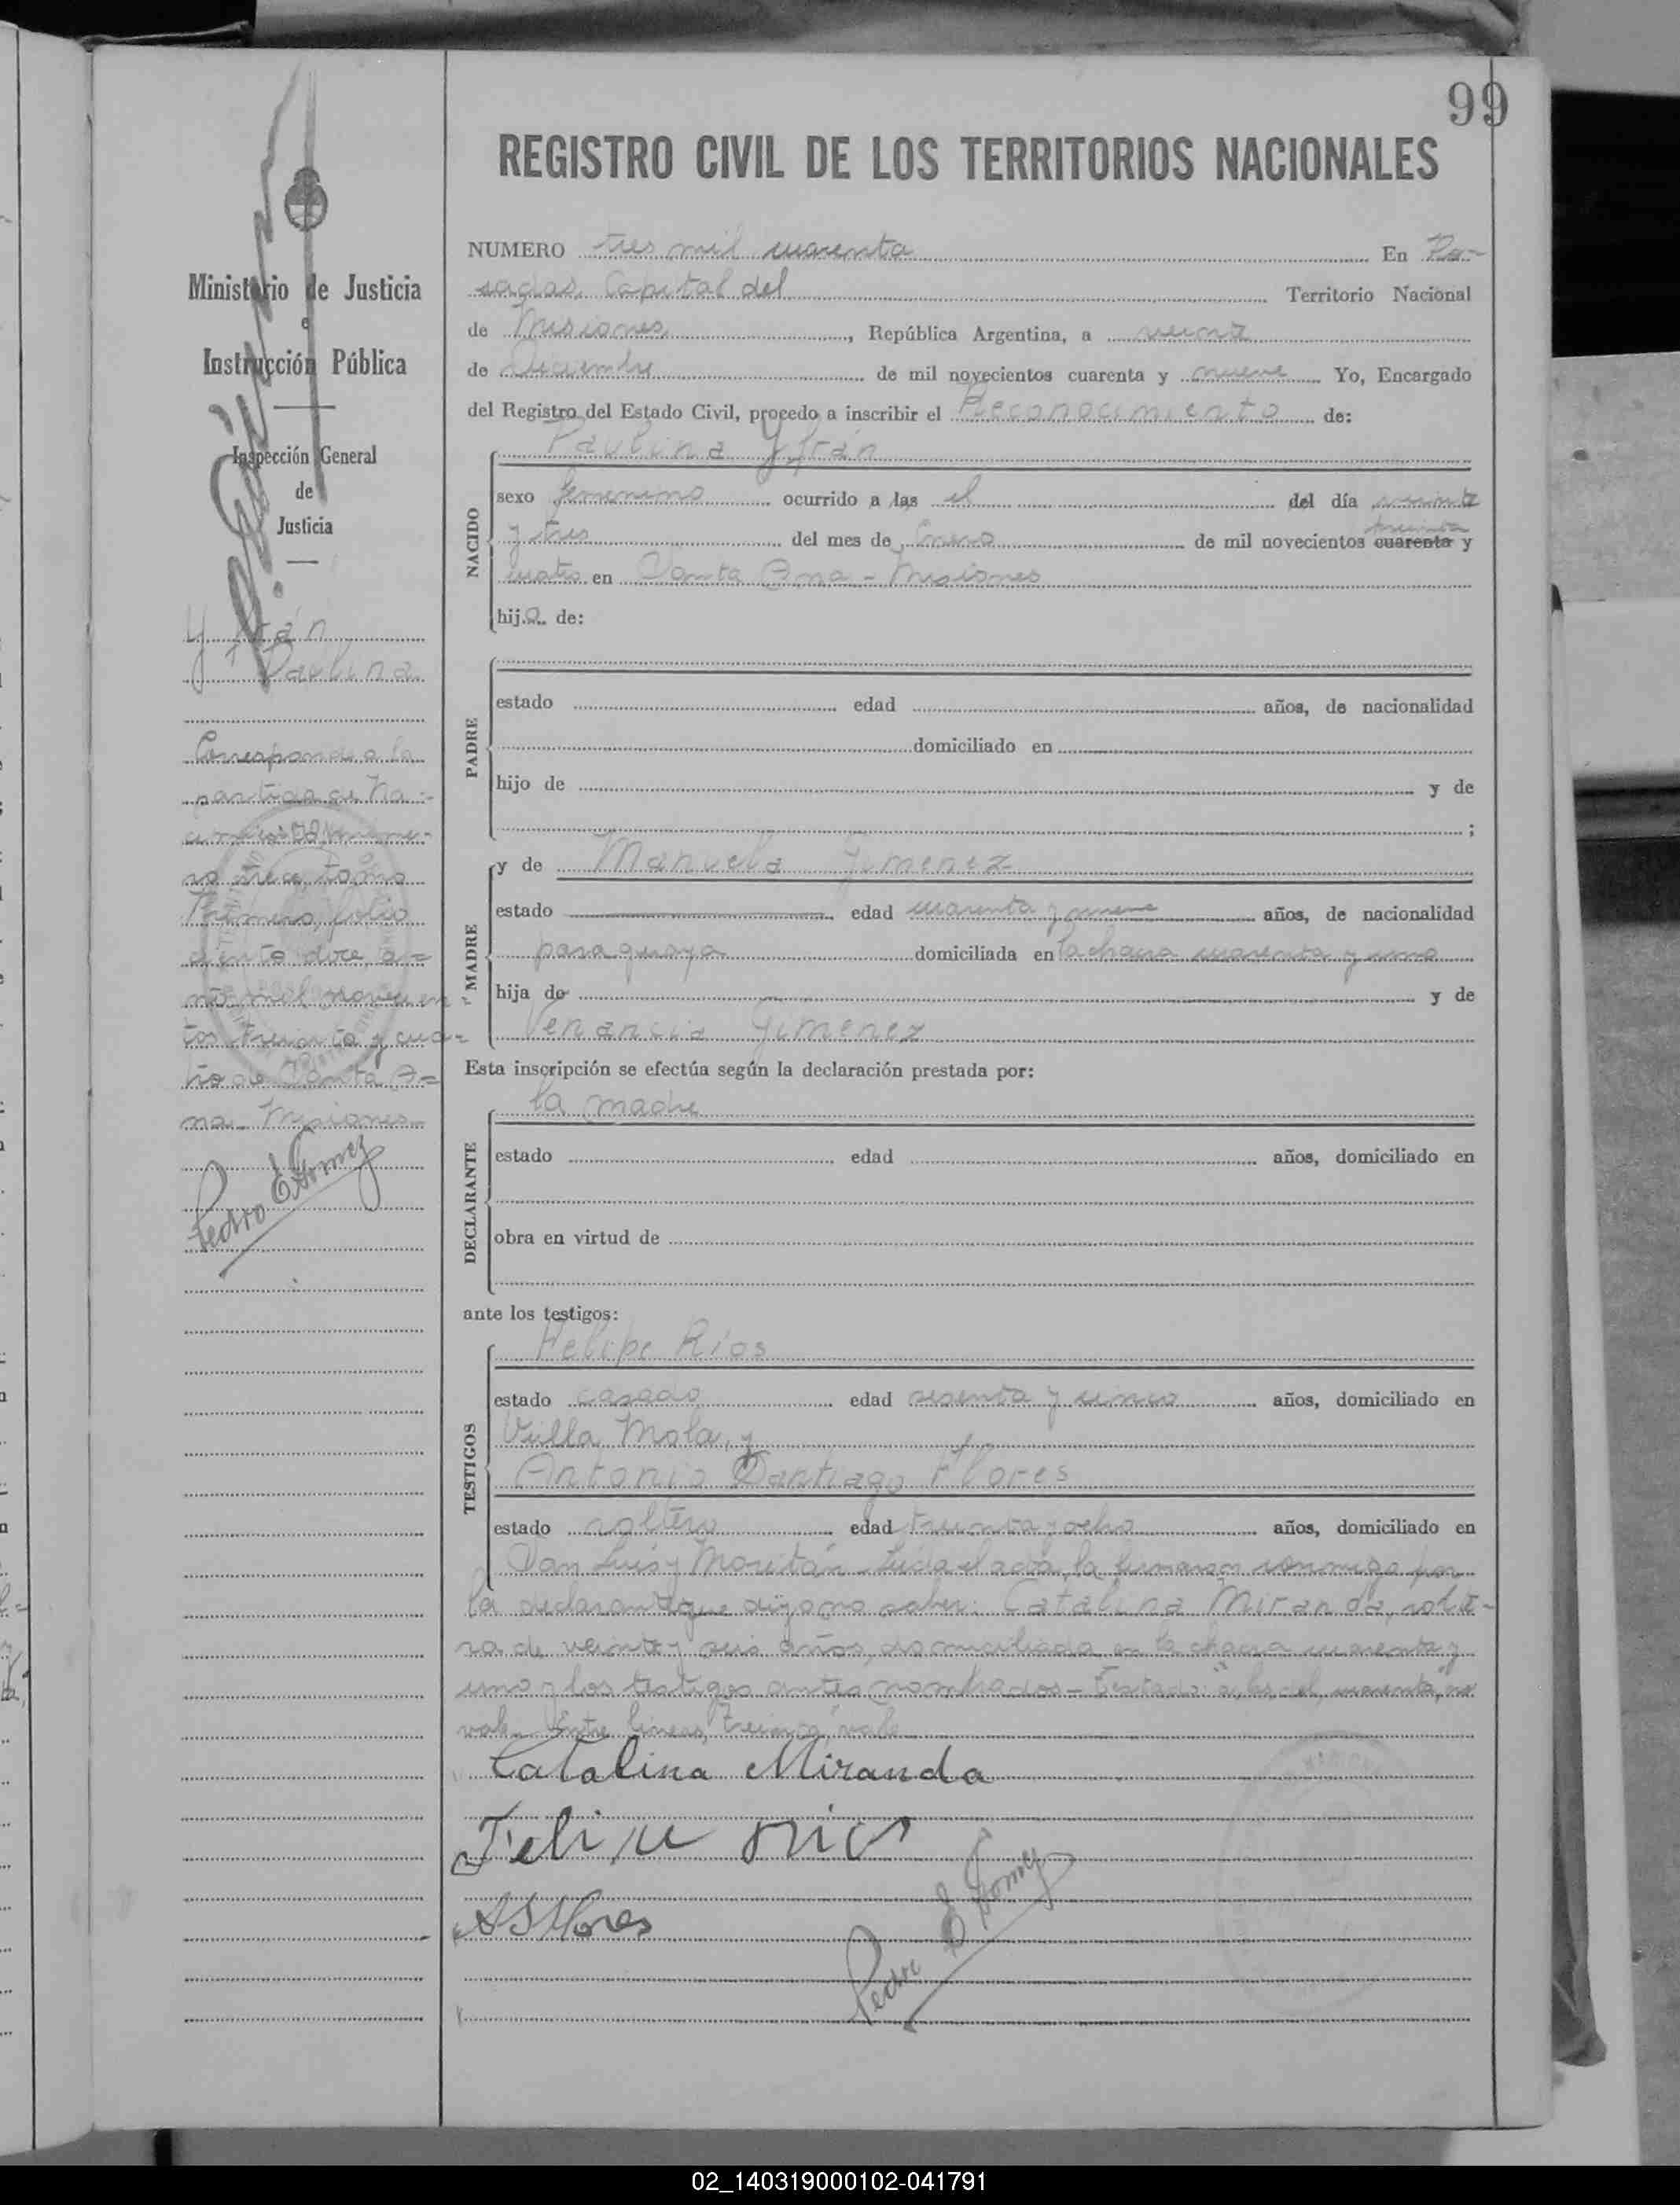 99
REGISTRO CIVIL DE LOS TERRITORIOS NACIONALES
Ministerio de Justicia
e
Instrucción Pública
Inspección General
de
Justicia
Yfrán
Paulina
Corresponde a la
partida de Na-
cimiento núme-
ro trece, tomo
Primero, folio
ciento doce, a-
ño mil novecien
tos treinta y cua-
tro de Santa A-
na - Misiones -
Pedro E. Gomez
NUMERO tres mil cuarenta En Po-
sadas, Capital del Territorio Nacional
de Misiones, República Argentina, a veinte
de Diciembre de mil novecientos cuarenta y nueve Yo, Encargado
del Registro del Estado Civil, procedo a inscribir el Reconocimiento de:
Paulina Yfrán
NACIDO
sexo femenino ocurrido a las el del día veinte
y tres del mes de Enero de mil novecientos cuarenta treinta y
cuatro en Santa Ana - Misiones
hija de:
PADRE
estado edad años, de nacionalidad
domiciliado en
hijo de y de
;
MADRE
y de Manuela Gimenez
estado edad cuarenta y nueve años, de nacionalidad
paraguaya domiciliada en la chacra cuarenta y uno
hija de y de
Venancia Gimenez
Esta inscripción se efectúa según la declaración prestada por:
la madre
DECLARANTE
estado edad años, domiciliado en
obra en virtud de
ante los testigos:
TESTIGOS
Felipe Ríos
estado casado edad sesenta y cinco años, domiciliado en
Villa Mola, y
Antonio Santiago Flores
estado soltero edad treinta y ocho años, domiciliado en
San Luis y Moritán - Leída el acta, la firmaron conmigo por
la declarante que dijo no saber: Catalina Miranda, solte-
ra de veinte y seis años, domiciliada en la chacra cuarenta y
uno y los testigos antes nombrados - Testado: "a las, del, cuarenta", no
vale. Entre lineas, "treinta" vale
Catalina Miranda
Felipe rios
A S Flores
Pedro E Gomez
02_140319000102-041791